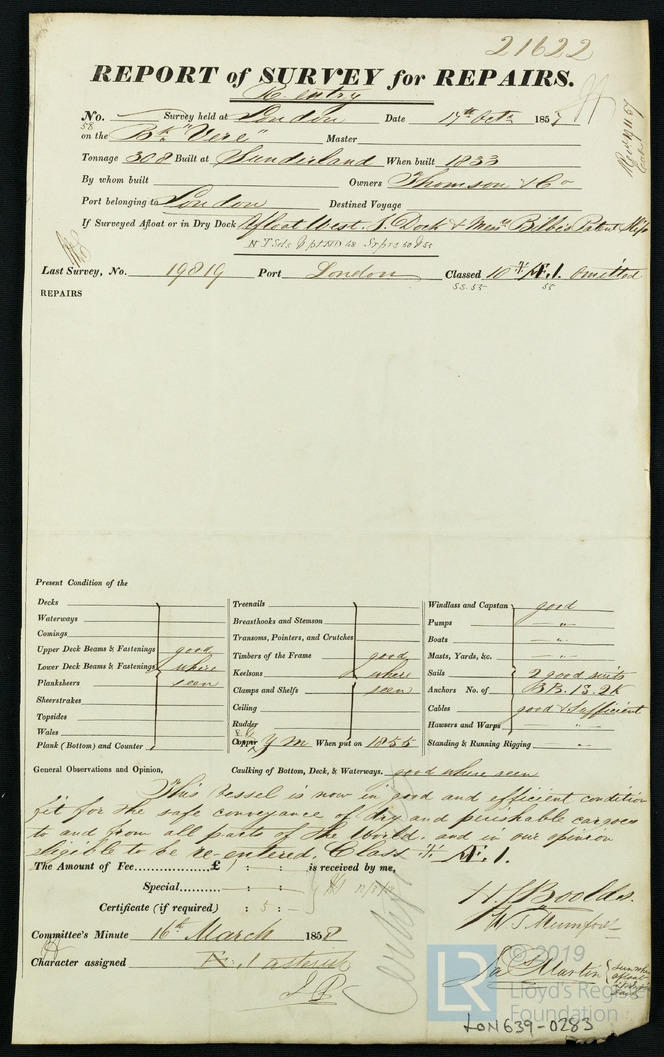 21622
REPORT of SURVEY for REPAIRS.
Re-entry
No. — Survey held at London Date 17th Octr 1857
58
on the Bk "Vere" Master
Tonnage 308 Built at Sunderland When built 1833
By whom built Owners Thomson & Co
Port belonging to London Destined Voyage
If Surveyed Afloat or in Dry Dock Afloat West. I. Dock & Messrs Bilbe's Patent Slip
Last Survey, No. 19819 Port London Classed 10 Æ.1. Omitted
55
REPAIRS
Present Condition of the
Decks
Waterways
Comings
Upper Deck Beams & Fastenings good
Lower Deck Beams & Fastenings where
Planksheers seen
Sheerstrakes
Topsides
Wales
Plank (Bottom) and Counter
Treenails
Breasthooks and Stemson
Transoms, Pointers, and Crutches
Timbers of the Frame good
Keelsons where
Clamps and Shelfs seen
Ceiling
Rudder
Copper Y M When put on 1855
Windlass and Capstan good
Pumps — " —
Boats — " —
Masts, Yards, &c. — " —
Sails 2 good suits
Anchors No. of 3 B. 1 S. 2 K
Cables good & sufficient
Hawsers and Warps — " —
Standing & Running Rigging — " —
General Observations and Opinion, Caulking of Bottom, Deck, & Waterways. good where seen
This Vessel is now in good and efficient condition
fit for the safe conveyance of dry and perishable cargoes
to and from all parts of the World. and in our opinion
eligible to be re-entered. Class Æ.1.
The Amount of Fee £ : : is received by me,
Special : :
Certificate (if required) : 5 :
H. J. Boolds.
W. T. Mumford
Committee's Minute 16th March 1858
Character assigned Æ.1 asterisk
Jas Martin
© 2019
LR
Lloyd's Register
Foundation
LON639-0283